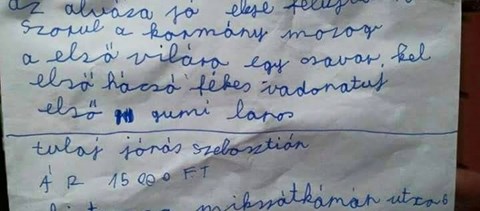 az alváza jó eleje felújí
szorul a kormány mozog
a első vilára egy csavar kel
első hácsó fékes vadonatuj
első gumi laros
tulaj jónás szebasztián
ÁR 15000 FT
mikszátkámán utxa 6